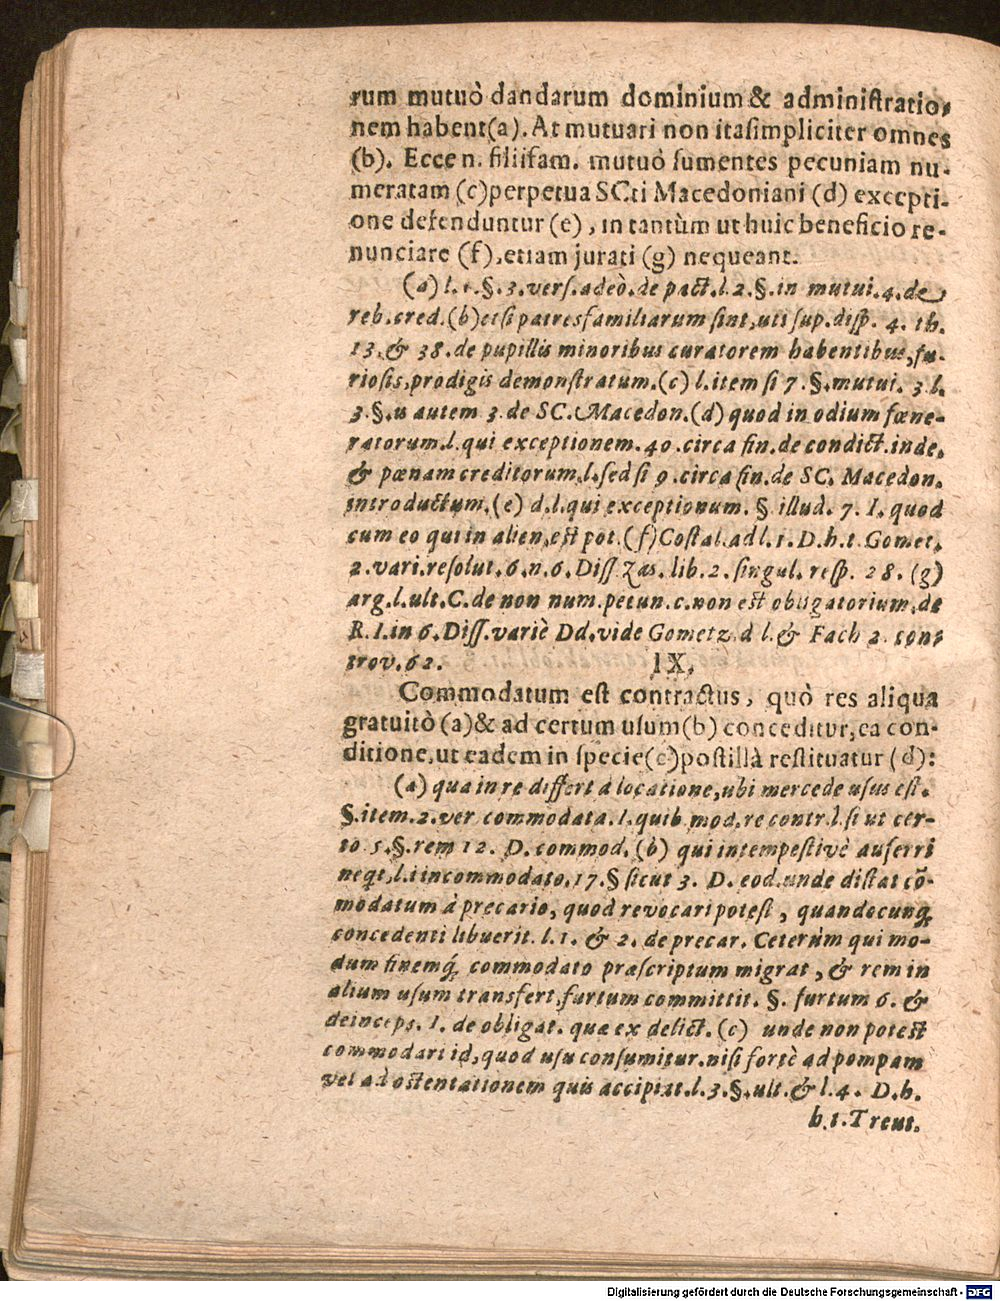 rum mutuò dandarum dominium & administratio-
nem habent(a). At mutuari non ita simpliciter omnes
(b). Ecce n. filiifam. mutuò sumentes pecuniam nu-
meratam (c) perpetua SCti Macedoniani (d) excepti-
one defenduntur (e), in tantùm ut huic beneficio re-
nunciare (f), etiam jurati (g) nequeant.
(a) l. 1. §. 3. vers. adeò. de pact. l. 2. §. in mutui. 4. de
reb. cred. (b) etsi patresfamiliarum sint, uti sup. disp. 4. th.
13. & 38. de pupillis minoribus curatorem habentibus, fu-
riosis, prodigis demonstratum. (c) l. item si 7. §. mutui. 3 l.
3. §. is autem 3. de SC. Macedon. (d) quod in odium fœne-
ratorum. l. qui exceptionem. 40. circa fin. de condict. inde.
& pœnam creditorum. l. sed si 9. circa fin. de SC. Macedon.
introductum. (e) d. l. qui exceptionum. § illud. 7. I. quod
cum eo qui in alien. est pot. (f) Costal. ad l. 1. D. h. t. Gomet.
2. vari. resolut. 6. n. 6. Diss Zas. lib. 2. singul. resp. 28. (g)
arg. l. ult. C. de non num. pecun. c. non est obligatorium. de
R. I. in 6. Diss. variè Dd. vide Gometz. d l. & Fach 2. con-
trov. 62. IX.
Commodatum est contractus, quò res aliqua
gratuitò (a) & ad certum usum (b) conceditur, ea con-
ditione, ut eadem in specie (c) post illà restituatur (d):
(a) qua in re differt à locatione, ubi mercede usus est.
§. item. 2. ver commodata. I. quib mod. re contr. l. si ut cer-
to 5. §. rem 12. D. commod. (b) qui intempestivè auferri
neqt, l. i incommodato. 17. § sicut 3. D. eod. unde distat cō-
modatum à precario, quod revocari potest, quandocunq́
concedenti libuerit. l. 1. & 2. de precar. Ceterùm qui mo-
dum finemq́ commodato præscriptum migrat, & rem in
alium usum transfert, furtum committit. §. furtum 6. &
deinceps. I. de obligat. quæ ex delict. (c) unde non potest
commodari id, quod usu consumitur. nisi fortè ad pompam
vel ad ostentationem quis accipiat. l. 3. §. ult. & l. 4. D. h.
b. 1. Treut.
Digitalisierung gefördert durch die Deutsche Forschungsgemeinschaft - DFG